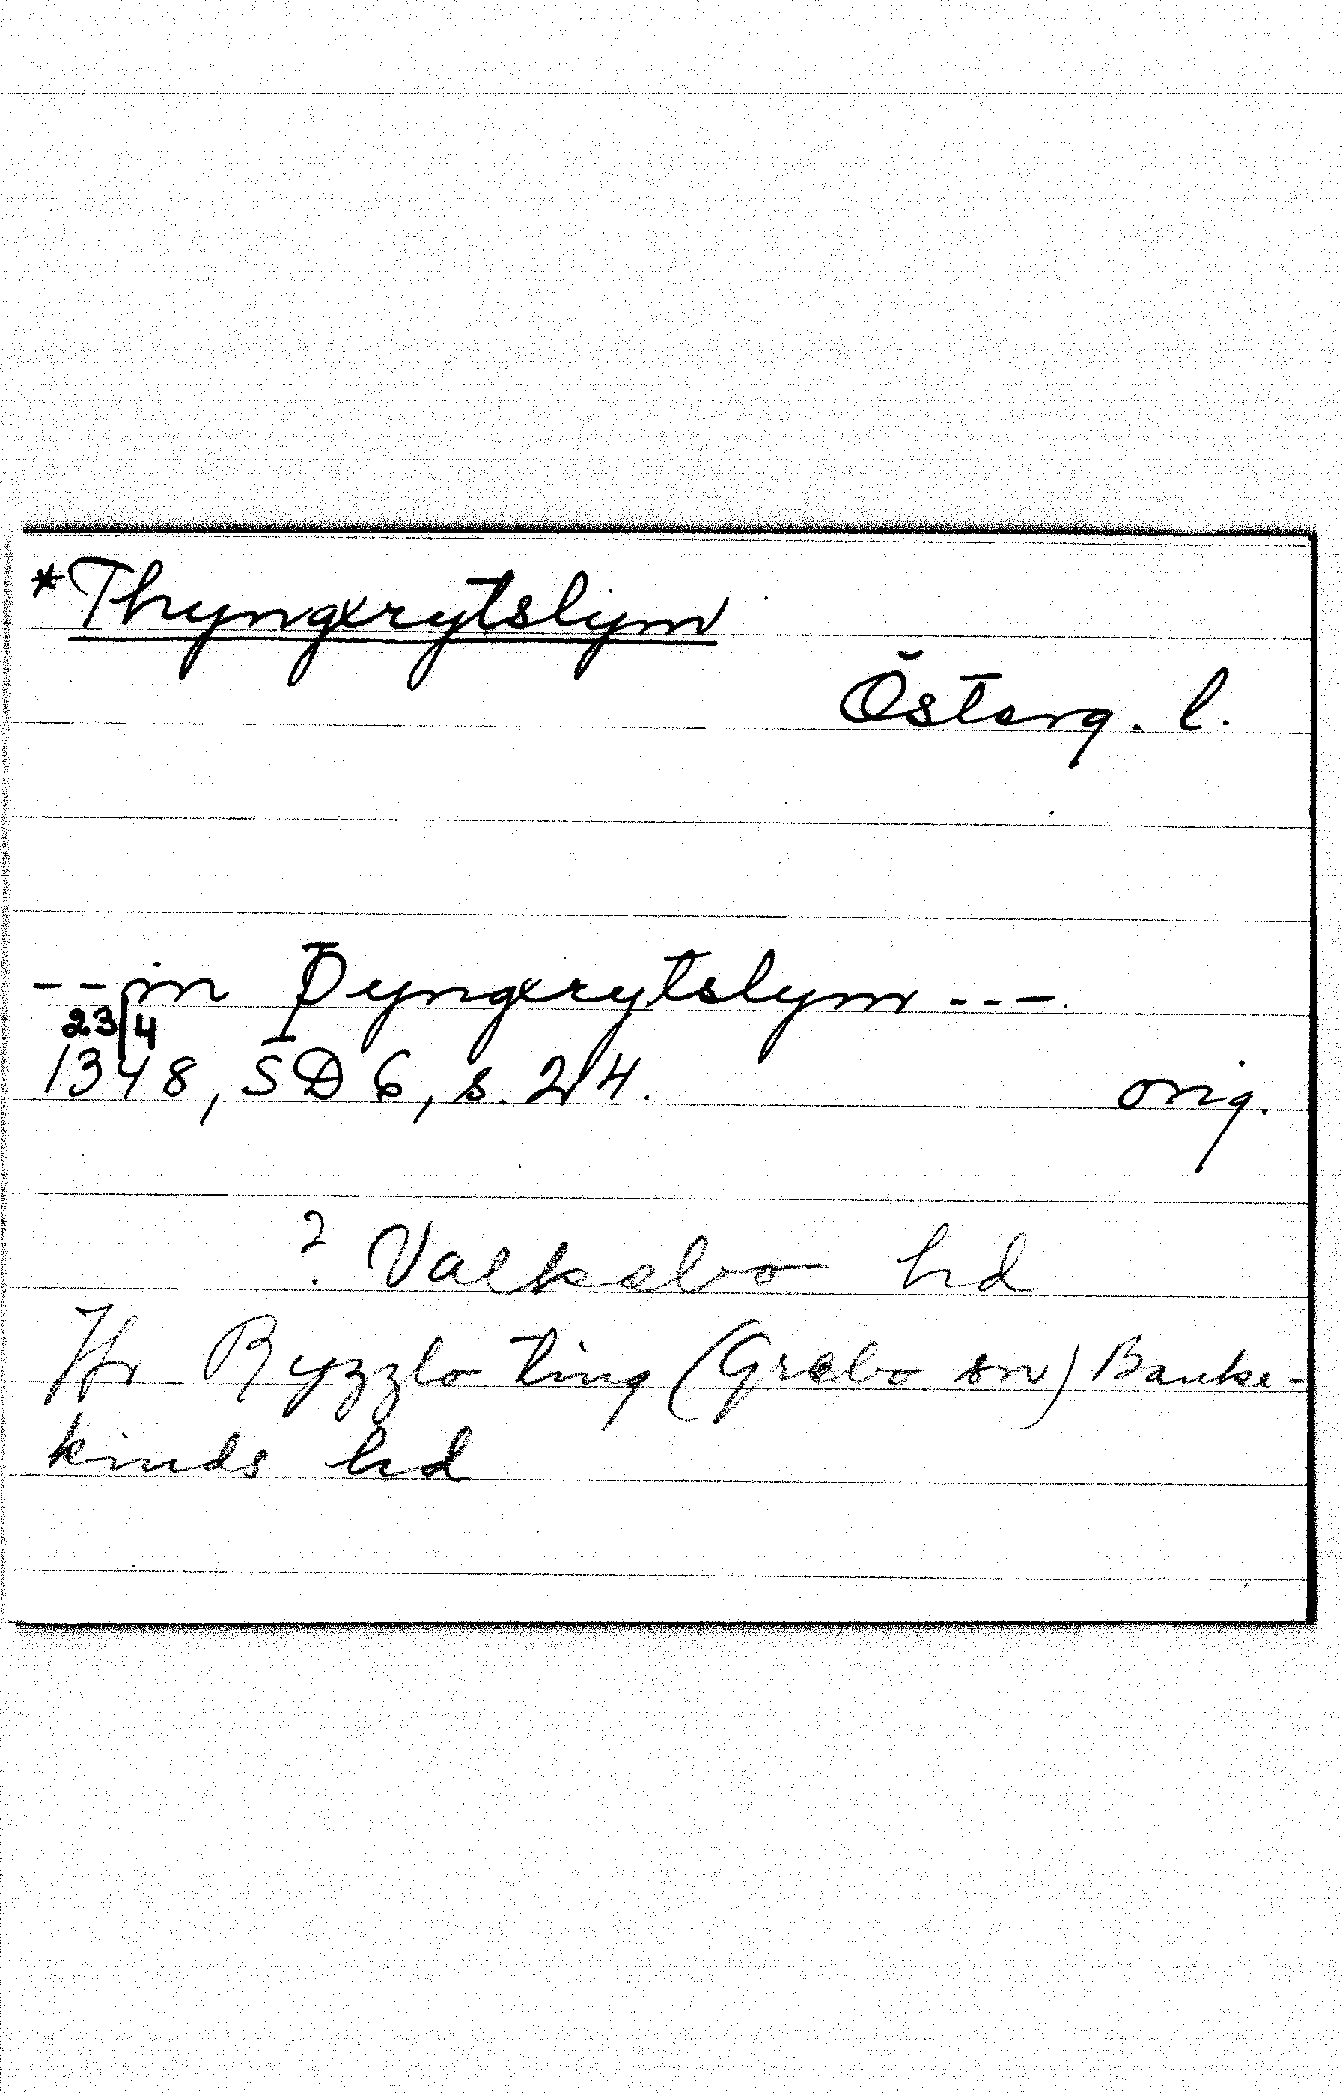 *Thyngxrytslym
Österg. l.
--in Þyngxrytslym---
23/4
1348, SD 6, s. 24. orig.
? Valkebo hd
Jfr Ryzzlo ting (Grebo sn) Banke-
kinds hd